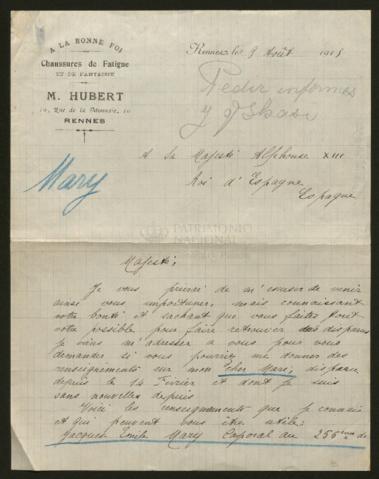 A LA BONNE FOI
Chaussures de Fatigue
ET DE FANTAISIE
M. HUBERT
RENNES
Rennes, les 9 Août 1915
Pedir informes
y
Mary
A Sa Majesté Alphonse XIII
Roi d'Espagne
Espagne
PATRIMONIO
NACIONAL
Majesté,
Je vous prierai de m'excuser de venir
ainsi vous importuner, mais connaissant
votre bonté et sachant que vous faites tout
votre possible pour faire retrouver des disparus
je viens m'adresser a vous pour vous
demander si vous pourriez me donner des
renseignements sur mon cher Mari, disparu
depuis le 14 Février et dont je suis
sans nouvelles depuis
Voici les renseignements que je connais
et qui peuvent vous être utile:
Jacques Emile Mary Caporal au 256ème de